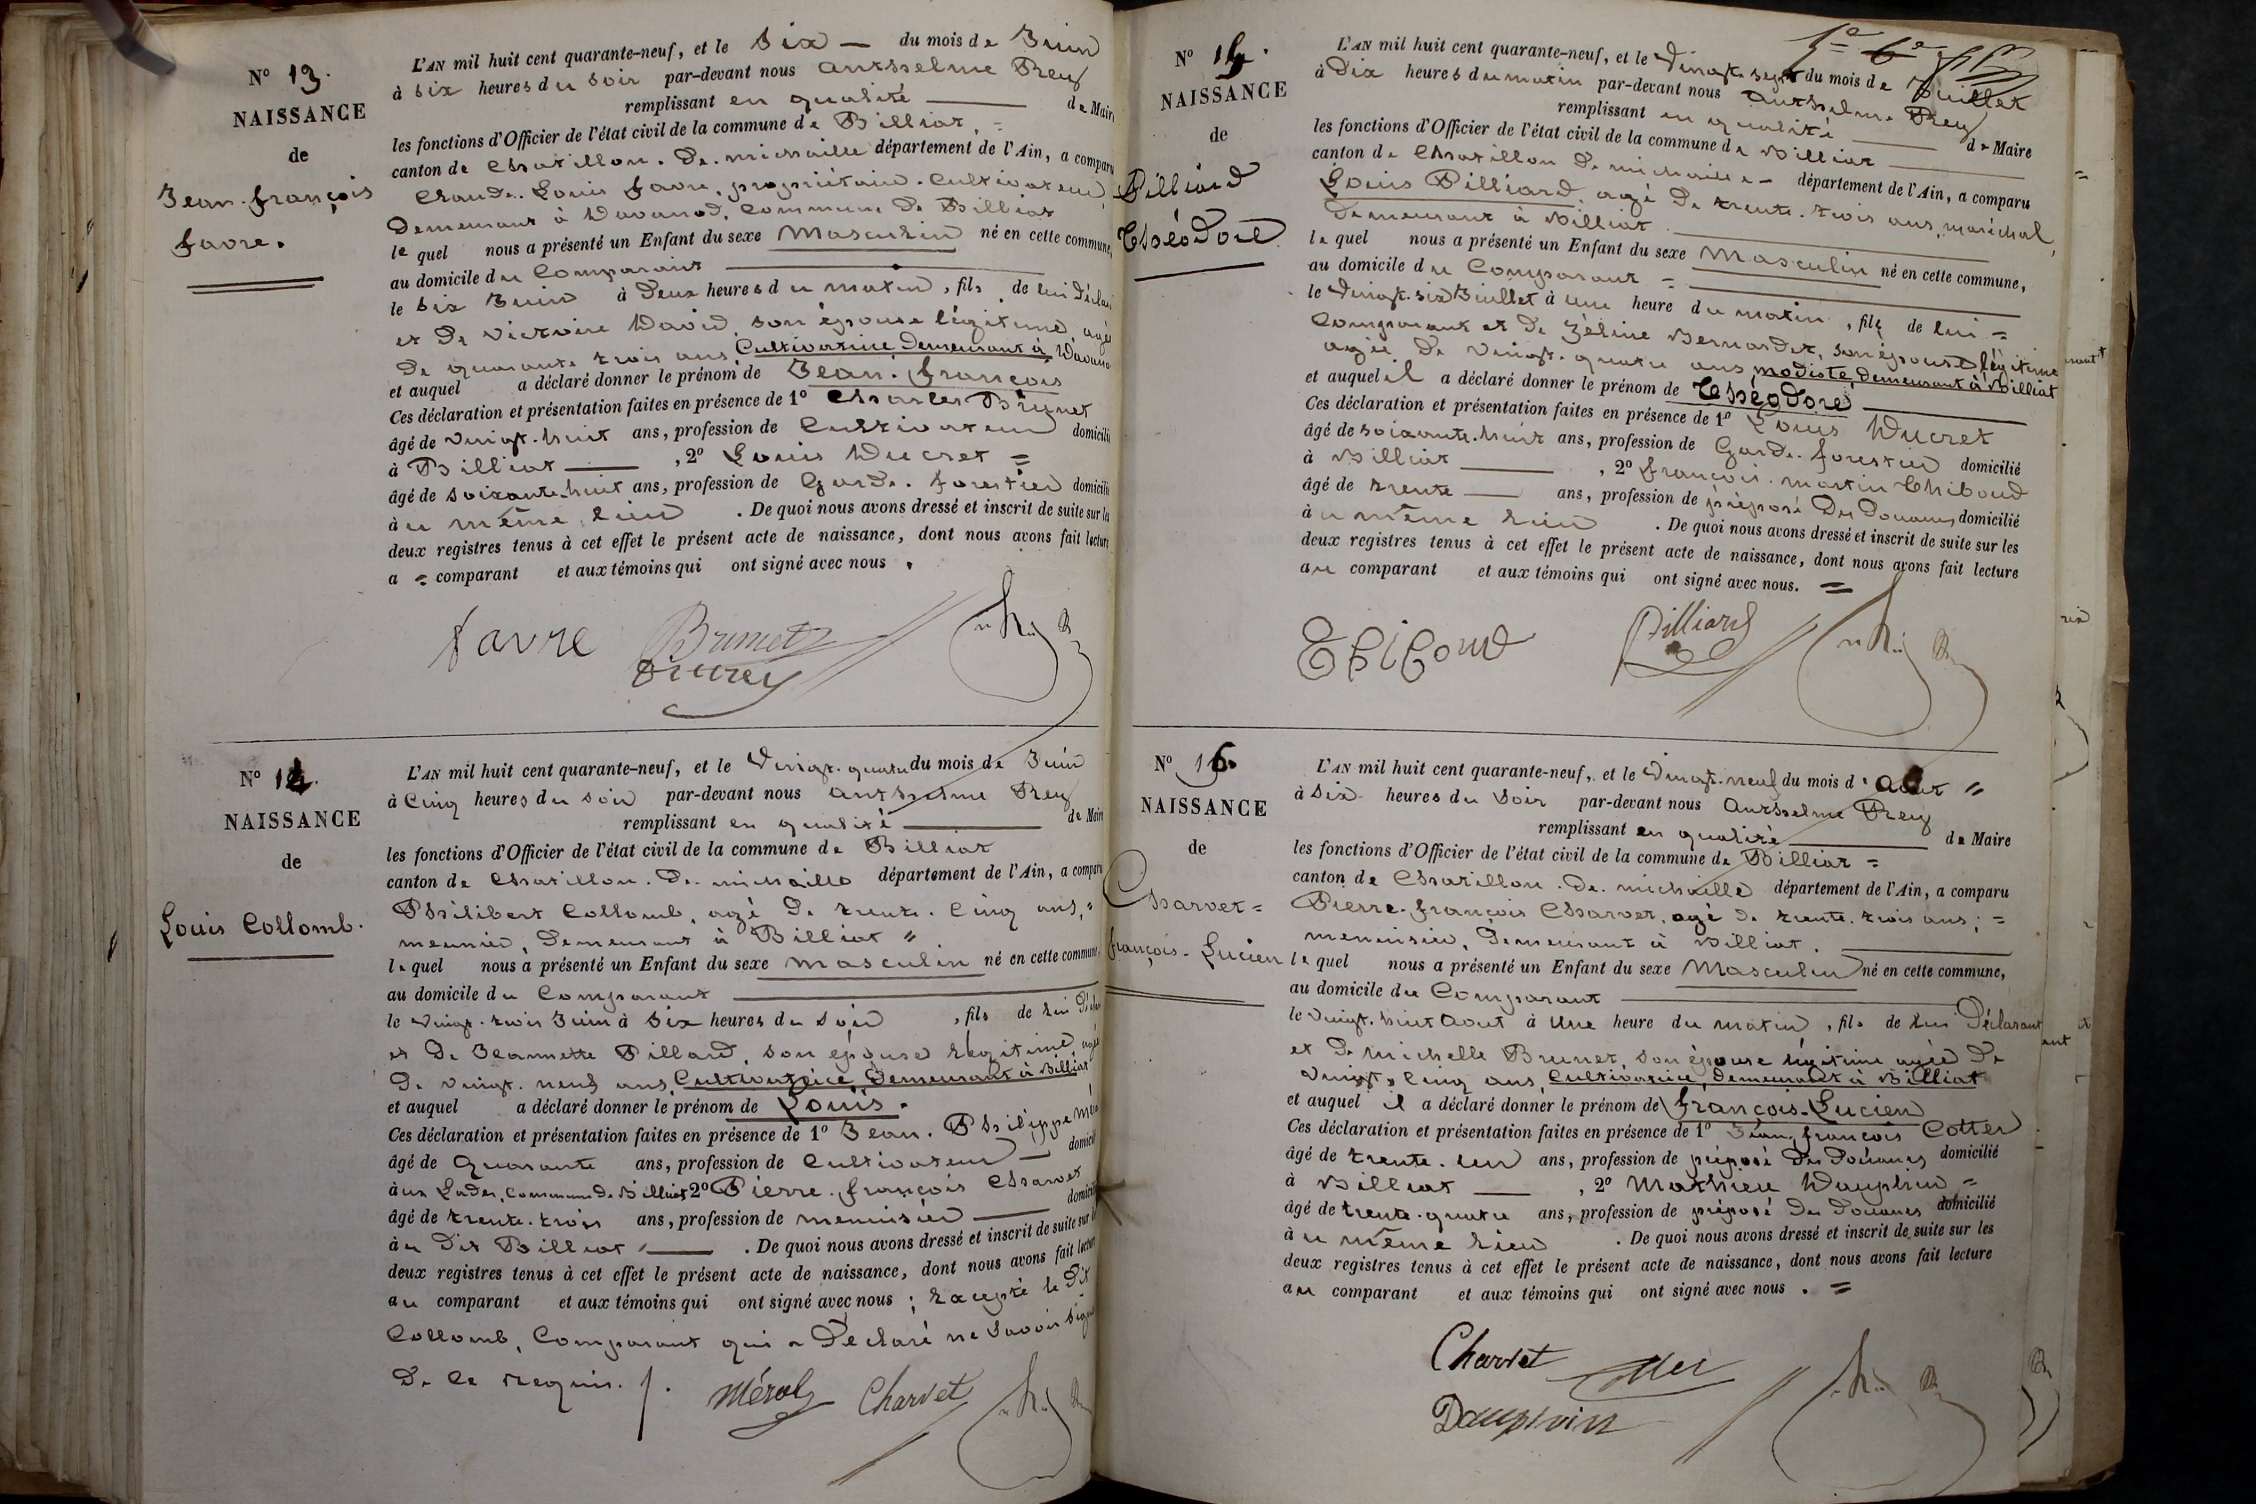 N° 13.
NAISSANCE
de
Jean-françois
favre.
L'AN mil huit cent quarante-neuf, et le Six — du mois de Juin
à six heures du soir par-devant nous Anthelme Rey
remplissant en qualité — de Maire
les fonctions d'Officier de l'état civil de la commune de Billiat, =
canton de Chatillon. De. michaille département de l'Ain, a comparu
Claude. Louis favre, propriétaire. Cultivateur,
Demeurant à Davanod, Commune De Billiat
le quel nous a présenté un Enfant du sexe Masculin né en cette commune,
au domicile du Comparant —
le Six Juin à Deux heures du matin, fils de lui Décla
et De Victoire David, son épouse légitime, agée
De quarante trois ans, Cultivatrice, Demeurant à Davano
et auquel a déclaré donner le prénom de Jean. françois
Ces déclaration et présentation faites en présence de 1° Charles Brunet
âgé de vingt-huit ans, profession de Cultivateur domicilié
à Billiat — , 2° Louis Ducret =
âgé de soixante-huit ans, profession de Garde. forestier domicilié
à u même lieu . De quoi nous avons dressé et inscrit de suite sur les
deux registres tenus à cet effet le présent acte de naissance, dont nous avons fait lecture
a = comparant et aux témoins qui ont signé avec nous .
favre Brunet
Ducret
N° 14.
NAISSANCE
de
Louis Collomb.
L'AN mil huit cent quarante-neuf, et le Vingt. quatre du mois de Juin
à Cinq heures du soir par-devant nous Anthelme Rey
remplissant en qualité — de Maire
les fonctions d'Officier de l'état civil de la commune de Billiat
canton de Chatillon. De. michaille département de l'Ain, a comparu
Philibert Collomb, agé De trente. Cinq ans, "
meunier, Demeurant à Billiat "
le quel nous a présenté un Enfant du sexe masculin né en cette commune,
au domicile du Comparant —
le vingt. trois Juin à Six heures du soir , fils de lui Décla
et De Jeannette Pillard, son épouse légitime agée
De vingt. neuf ans, Cultivatrice, Demeurant à Billiat
et auquel a déclaré donner le prénom de Louis.
Ces déclaration et présentation faites en présence de 1° Jean. Philippe Mér
âgé de Quarante ans, profession de Cultivateur — domicilié
à ux Lades, Commune De Billiat 2° Pierre. françois Charvet
âgé de trente. trois ans, profession de menuisier — domicilié
à u Dit Billiat — . De quoi nous avons dressé et inscrit de suite sur les
deux registres tenus à cet effet le présent acte de naissance, dont nous avons fait lecture
au comparant et aux témoins qui ont signé avec nous ; Excepté le Dit
Collomb, Comparant qui a Déclaré ne savoir signer
De ce requis. /.
Charvet
N° 15.
NAISSANCE
de
Pilliard
Théodore
L'AN mil huit cent quarante-neuf, et le Vingt. sept du mois de Juillet
à Dix heures du matin par-devant nous Anthelme Rey
remplissant en qualité — de Maire
les fonctions d'Officier de l'état civil de la commune de Billiat —
canton de Chatillon De michaille — département de l'Ain, a comparu
Louis Pilliard, agé De trente. trois ans, maréchal,
Demeurant à Billiat. —
le quel nous a présenté un Enfant du sexe Masculin né en cette commune,
au domicile du Comparant =
le Vingt. six Juillet à Une heure du matin, fils de lui =
Comparant et De Zéline Bernardet, son épouse légitime
agée De Vingt. quatre ans, modiste, Demeurant à Billiat
et auquel il a déclaré donner le prénom de Théodore —
Ces déclaration et présentation faites en présence de 1° Louis Ducret
âgé de soixante. huit ans, profession de Garde. forestier domicilié
à Billiat — , 2° françois. martin Thiboud
âgé de trente — ans, profession de préposé Des Douanes domicilié
à u même lieu . De quoi nous avons dressé et inscrit de suite sur les
deux registres tenus à cet effet le présent acte de naissance, dont nous avons fait lecture
au comparant et aux témoins qui ont signé avec nous. =
Thiboud Pilliard
N° 16.
NAISSANCE
de
Charvet =
françois. Lucien
L'AN mil huit cent quarante-neuf, et le Vingt. neuf du mois d' Aout "
à Six heures du Soir par-devant nous Anthelme Rey
remplissant en qualité — de Maire
les fonctions d'Officier de l'état civil de la commune de Billiat =
canton de Chatillon. De. michaille département de l'Ain, a comparu
Pierre. françois Charvet, agé De trente. trois ans; =
menuisier, Demeurant à Billiat. —
le quel nous a présenté un Enfant du sexe Masculin né en cette commune,
au domicile du Comparant —
le vingt. huit Aout à Une heure du matin, fils de lui Déclarant
et De michelle Brunet, son épouse légitime agée De
vingt. cinq ans, Cultivatrice, Demeurant à Billiat
et auquel il a déclaré donner le prénom de françois-Lucien
Ces déclaration et présentation faites en présence de 1° Jean. françois Cotter
âgé de trente. un ans, profession de préposé Des Douanes domicilié
à Billiat — , 2° Mathieu Dauphin =
âgé de trente. quatre ans, profession de préposé Des Douanes domicilié
à u même lieu . De quoi nous avons dressé et inscrit de suite sur les
deux registres tenus à cet effet le présent acte de naissance, dont nous avons fait lecture
au comparant et aux témoins qui ont signé avec nous . =
Charvet Cotter
Dauphin